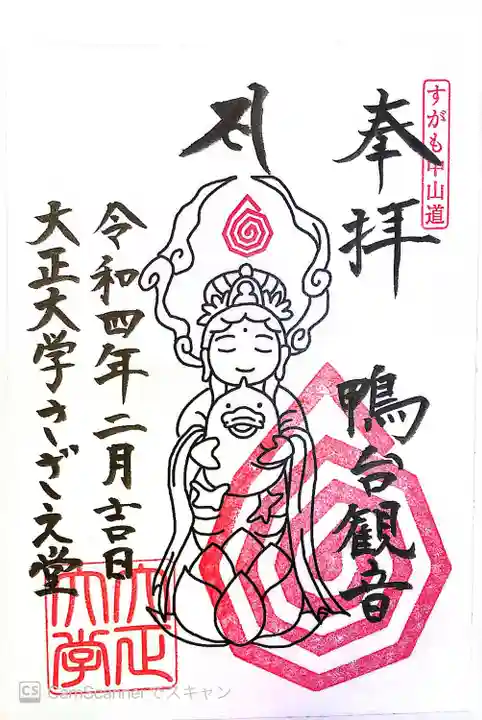 すがも中山道
奉拝
鴨台観音
令和四年二月吉日
大正大学さざえ堂
大正
大学
CS CamScannerでスキャン